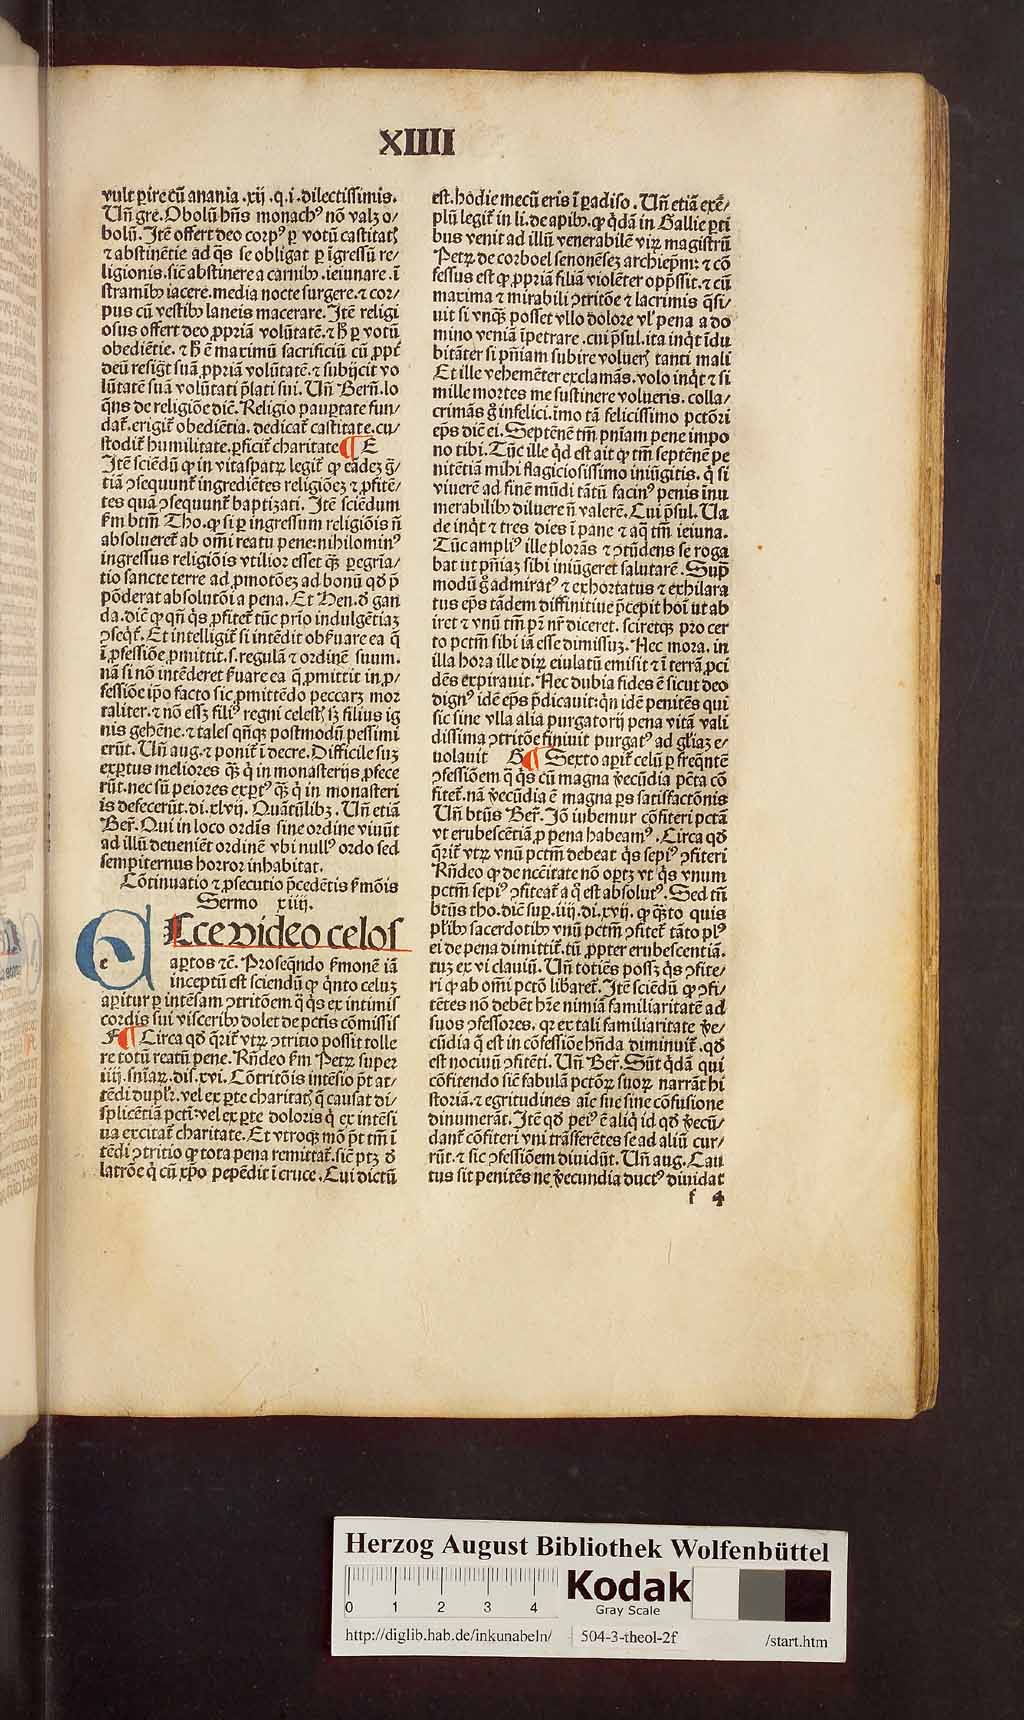 XIIII
vult ꝑire cū anania .xij .q.i. dilectissimis.
Un̄ gre. Obolū hn̄s monachꝰ nō valꝫ o/
bolū. Itē offert deo corpꝰ ꝑ votū castitatꝭ
⁊ abstinētie ad q̄s se obligat ꝑ īgressū re/
ligionis. sic̄ abstinere a carnibꝰ .ieiunare. ī
straminibꝰ iacere. media nocte surgere. ⁊ cor/
pus cū vestibꝰ laneis macerare. Itē religi
osus offert deo ꝓpriā volūtatē. ⁊ h̄ ꝑ votū
obediētie. ⁊ h̄ ē maximū sacrificiū cū ꝓpt̄
deū resigt̄ suā ꝓpriā volūtatē. ⁊ subijcit vo
lūtatē suā volūtati p̄lati sui. Un̄ Bern̄. lo
q̄ns de religiōe dic̄. Religio paupertate fun/
dat̄. erigit̄ obediētia. dedicat̄ castitate. cu/
stodit̄ humilitate. ꝑficit̄ charitate ¶ E
Itē sciēdū ꝙ in vitaspatꝝ legit̄ ꝙ eādeꝫ gr̄a/
tiā ↄsequunt̄ ingrediētes religiōeꝫ ⁊ ꝓfitē/
tes quā ↄsequunt̄ baptizati. Itē sciēdum
ẜm btm̄ Tho. ꝙ si ꝑ ingressum religiōis n̄
absolueret̄ ab om̄i reatu pene: nihilominꝰ
ingressus religiōis vtilior esset qꝫ̄ ꝑegria/
tio sancte terre ad ꝓmotōeꝫ ad bonū qd̓ p̄
pōderat absolutōi a pena. Et Hen. d̓ gan
da. dic̄ ꝙ qn̄ q̄s ꝓfitet̄ tūc prio indulgētiaꝫ
ↄseqt̄. Et intelligit̄ si intēdit obẜuare ea q̄
ī ꝓfessiōe ꝓmittit .s. regulā ⁊ ordinē suum.
nā si nō intēderet ẜuare ea q̄ ꝓmittit in ꝓ/
fessiōe ip̄o facto sic ꝓmittēdo peccarꝫ mor
taliter. ⁊ nō essꝫ filiꝰ regni celestꝭ sꝫ filius ig
nis gehēne. ⁊ tales qn̄qꝫ postmodū pessimi
erūt. Un̄ aug. ⁊ ponit̄ ī decre. Difficile suꝫ
exꝑtus meliores qꝫ̄ q̇ in monasterijs ꝓfece
rūt. nec sū peiores exꝑtꝰ qꝫ̄ q̇ in monasteri
is defecerūt. di. xlvij. Quātūlibꝫ. Un̄ etiā
Ber̄. Qui in loco ordīs sine ordine viuūt
ad illū deueniēt ordinē vbi nullꝰ ordo sed
sempiternus horror inhabitat.
Cōtinuatio ⁊ ꝓsecutio p̄cedētis ẜmōis
Sermo xiiij.
e Ecce video celos
aꝑtos ⁊c̄. Proseqn̄do ẜmonē iā
inceptū est sciendū ꝙ q̇nto celuꝫ
aperitur ꝑ intēsam ↄtritōem q̄ q̇s ex intimis
cordis sui visceribꝰ dolet de pctīs cōmissis
F ¶ Circa qd̓ q̄rit̄ vtꝝ ↄtritio possit tolle
re totū reatū pene. Rn̄deo ẜm Petrꝝ super
iiij. snīaꝝ. dis. xvi. Cōtritōis intēsio pt̄ at/
tēdi duplr̄. vel ex ꝑte charitatꝭ q̄ causat di/
splicētiā pctī: vel ex ꝑte doloris q̇ ex intēsi
ua excitat̄ charitate. Et vtroqꝫ mō pt̄ tm̄ ī
tēdi ↄtritio ꝙ tota pena remittat̄. sic̄ ptꝫ d̓
latrōe q̇ cū xp̄o pepēdit ī cruce. Cui dictū
est. hodie mecū eris ī paradiso. Un̄ etiā exē/
plū legit̄ in li. de apibꝰ. ꝙ q̇dā in Gallie ꝑti
bus venit ad illū venerabilē virꝝ magistrū
Petrꝝ de corboel senonēseꝫ archiep̄m: ⁊ cō
fessus est ꝙ ꝓpriā filiā violēter opp̄ssit. ⁊ cū
maxima ⁊ mirabili ↄtritōe ⁊ lacrimis q̄si/
uit si vnqꝫ̄ posset vllo dolore vl̓ pena a do
mino veniā īpetrare. cui p̄sul. ita inq̇t īdu
bitāter si pn̄iam subire voluerꝭ tanti mali
Et ille vehemēter exclamās. volo inq̇t ⁊ si
mille mortes me sustinere volueris. colla/
crimās g̊ infelici. imo tā felicissimo pctōri
ep̄s dic̄ ei. Septēnē tm̄ pn̄iam pene impo
no tibi. Tūc ille q̇d est ait ꝙ tm̄ septēnē pe
nitētiā mihi flagiciosissimo iniūgitis. q̇ si
viuerē ad finē mūdi tātū facinꝰ penis inu
merabilibꝰ diluere n̄ valerē. Cui p̄sul. Ua
de inq̇t ⁊ tres dies ī pane ⁊ aq̄ tm̄ ieiuna.
Tūc ampliꝰ ille plorās ⁊ ↄtūdens se roga
bat ut pn̄iaꝫ sibi iniūgeret salutarē. Sup̄
modū g̊ admiratꝰ ⁊ exhortatus ⁊ exhilara
tus ep̄s tādem diffinitiue p̄cepit hoī ut ab
iret ⁊ vnū tm̄ pr̄ nr̄ diceret. sciretqꝫ pro cer
to pctm̄ sibi iā esse dimissuꝫ. Nec mora. in
illa hora ille dirꝝ eiulatū emisit ⁊ ī terrā ꝓci
dēs expirauit. Nec dubia fides ē sicut deo
dignꝰ idē ep̄s p̄dicauit: q̇n idē penitēs qui
sic sine vlla alia purgatorij pena vitā vali
dissima ↄtritōe finiuit purgatꝰ ad gl̄iaꝫ e/
uolauit B ¶ Sexto aꝑit̄ celū ꝑ freqn̄tē
ↄfessiōem q̄ q̇s cū magna v̄ecūdia pctā cō
fitet̄. nā v̄ecūdia ē magna ꝑs satisfactōnis
Un̄ btūs Ber̄. Iō iubemur cōfiteri pctā
vt erubescētiā ꝓ pena habeamꝰ. Circa qd̓
q̄rit̄ vtꝝ vnū pctm̄ debeat q̇s sepiꝰ ↄfiteri
Rn̄deo ꝙ de nccītate nō oportꝫ vt q̇s vnum
pctm̄ sepiꝰ ↄfiteat̄ a q̇ est absolutꝰ. Sed tn̄
btūs tho. dic̄ sup. iiij. di. xvij. ꝙ qꝫ̄to quis
pl̓ibꝰ sacerdotibꝰ vnū pctm̄ ↄfitet̄ tāto plꝰ
ei de pena dimittit̄. tū ꝓpter erubescentiā.
tuꝫ ex vi clauiū. Un̄ totiēs possꝫ q̇s ↄfite/
ri ꝙ ab om̄i pctō libaret̄. Itē sciēdū ꝙ ↄfi/
tētes nō debēt hr̄e nimiā familiaritatē ad
suos ↄfessores. qꝛ ex tali familiaritate v̄e/
cūdia q̄ est in cōfessiōe hn̄da diminuit̄. qd̓
est nociuū ↄfitēti. Un̄ Ber̄. Sūt q̇dā qui
cōfitendo sic̄ fabulā pctōꝝ suoꝝ narrāt hi
storiā. ⁊ egritudines aīe sue sine cōfusione
dinumerāt. Itē qd̓ peiꝰ ē aliq̇ id qd̓ v̄ecū/
dant̄ cōfiteri vni trāsferētes se ad aliū cur/
rūt. ⁊ sic ↄfessiōem diuidūt. Un̄ aug. Cau
tus sit penitēs ne v̄ecundia ductꝰ diuidat
f 4
Herzog August Bibliothek Wolfenbüttel
0 1 2 3 4
Kodak
Gray Scale
http://diglib.hab.de/inkunabeln/ 504-3-theol-2f /start.htm